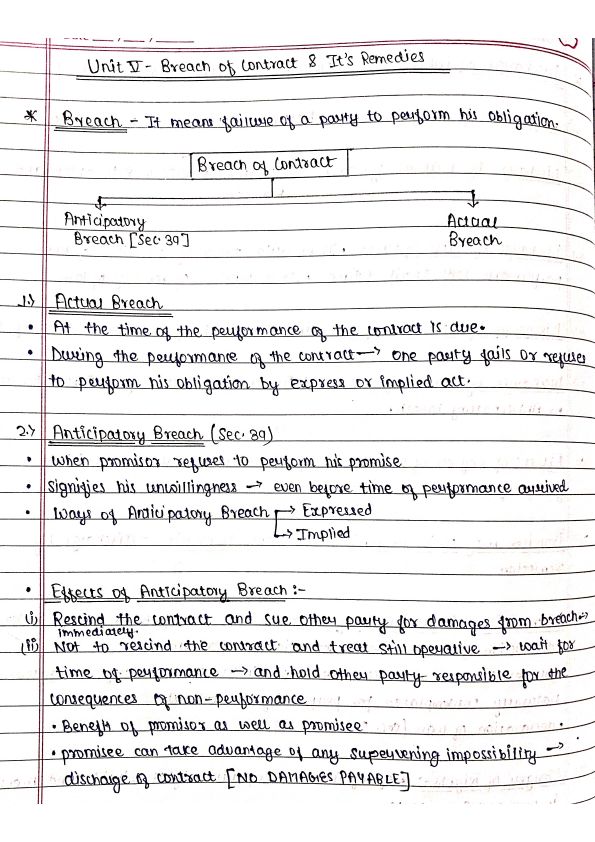 Unit V - Breach of Contract & It's Remedies
* Breach - It means failure of a party to perform his obligation.
Breach of Contract
Anticipatory Actual
Breach [Sec. 39] Breach
1.) Actual Breach
• At the time of the performance of the contract is due.
• During the performance of the contract → one party fails or refuses
to perform his obligation by express or implied act.
2.) Anticipatory Breach (Sec. 39)
• When promisor refuses to perform his promise
• Signifies his unwillingness → even before time of performance arrived
• Ways of Anticipatory Breach → Expressed
→ Implied
• Effects of Anticipatory Breach :-
(i) Rescind the contract and sue other party for damages from breach
immediately.
(ii) Not to rescind the contract and treat still operative → wait for
time of performance → and hold other party responsible for the
consequences of non-performance
• Benefit of promisor as well as promisee
• promisee can take advantage of any supervening impossibility →
discharge of contract [NO DAMAGES PAYABLE]